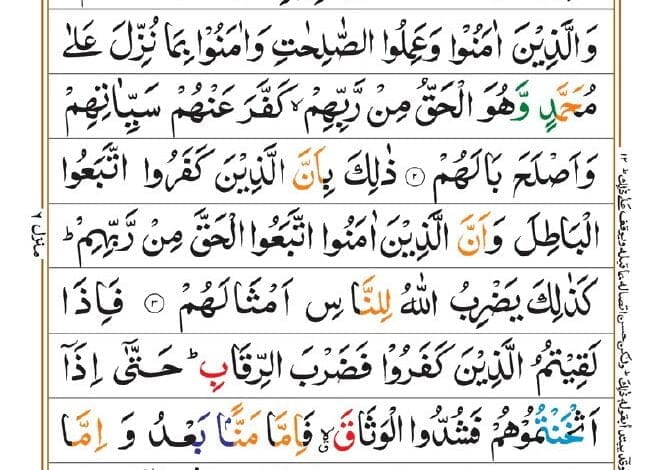 وَالَّذِيْنَ اٰمَنُوْا وَعَمِلُوا الصّٰلِحٰتِ وَاٰمَنُوْا بِمَا نُزِّلَ عَلٰى
مُحَمَّدٍ وَّهُوَ الْحَقُّ مِنْ رَّبِّهِمْ ۙ كَفَّرَ عَنْهُمْ سَيِّاٰتِهِمْ
وَاَصْلَحَ بَالَهُمْ ۝۲ ذٰلِكَ بِاَنَّ الَّذِيْنَ كَفَرُوا اتَّبَعُوا
الْبَاطِلَ وَاَنَّ الَّذِيْنَ اٰمَنُوا اتَّبَعُوا الْحَقَّ مِنْ رَّبِّهِمْ ؕ
كَذٰلِكَ يَضْرِبُ اللّٰهُ لِلنَّاسِ اَمْثَالَهُمْ ۝۳ فَاِذَا
لَقِيْتُمُ الَّذِيْنَ كَفَرُوْا فَضَرْبَ الرِّقَابِ ؕ حَتّٰٓى اِذَاۤ
اَثْخَنْتُمُوْهُمْ فَشُدُّوا الْوَثَاقَ ۙ فَاِمَّا مَنًّۢا بَعْدُ وَ اِمَّا
منزل ۷